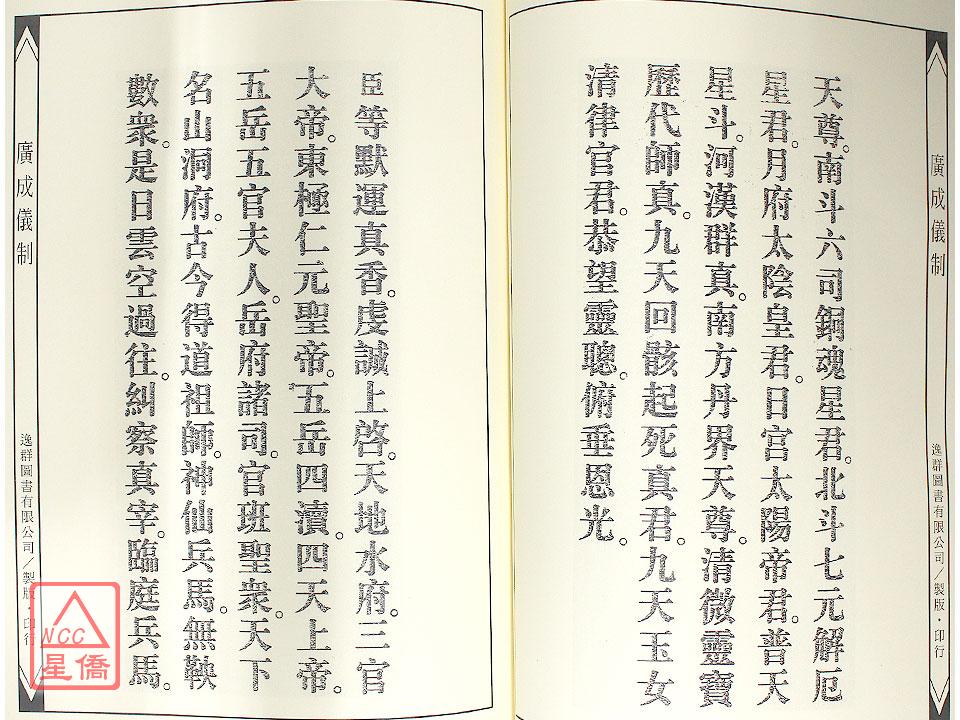 廣成儀制
逸群圖書有限公司／製版・印行
天尊。南斗六司錮魂星君。北斗七元解厄
星君。月府太陰皇君。日宮太陽帝君。普天
星斗。河漢群真。南方丹界天尊。清微靈寶
歷代師真。九天回骸起死真君。九天玉女
清律官君。恭望靈聰。俯垂恩光。
臣等默運真香。虔誠上啓。天地水府。三官
大帝。東極仁元聖帝。五岳四瀆。四天上帝。
五岳五官夫人。岳府諸司。官班聖衆。天下
名山洞府。古今得道祖師。神仙兵馬。無鞅
數衆。是日雲空過往。糾察真宰。臨庭兵馬。
廣成儀制
逸群圖書有限公司／製版・印行
NCC
星僑